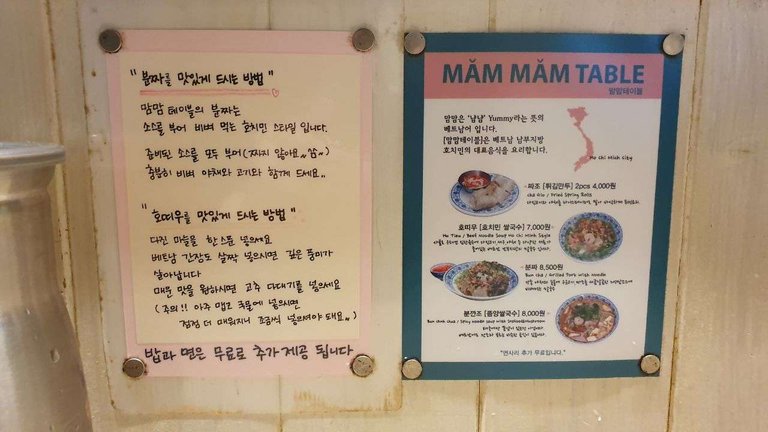 " 분짜를 맛있게 드시는 방법 "
맘맘 테이블의 분짜는
소스를 부어 비벼 먹는 호치민 스타일 입니다.
준비된 소스를 모두 부어 (찌지 않아요~
충분히 비벼 야채와 고기와 함께 드세요..
" 호띠우를 맛있게 드시는 방법 "
다진 마늘을 한스푼 넣으세요
베트남 간장도 살짝 넣으시면 깊은 풍미가
살아납니다
매운 맛을 원하시면 고추 다대기를 넣으세요
( 주의!! 아주 맵고 국물에 넣으시면
점점 더 매워지니 조금씩 넣으셔야 돼요~ )
밥과 면은 무료로 추가 제공 됩니다
MĂM MĂM TABLE
맘맘테이블
맘맘은 '냠냠' Yummy라는 뜻의
베트남어 입니다.
[맘맘테이블]은 베트남 남부지방
호치민의 대표음식을 요리합니다.
Ho Chi Minh City
짜조 [튀김만두] 2pcs 4,000원
Cha Gio / Fried Spring Rolls
호띠우 [호치민 쌀국수] 7,000원
Hu Tieu / Beef Noodle Soup Ho Chi Minh Style
분짜 8,500원
Bun Cha / Grilled Pork With Noodle
분깐조 [똠얌쌀국수] 8,000원
"면사리 추가 무료입니다."